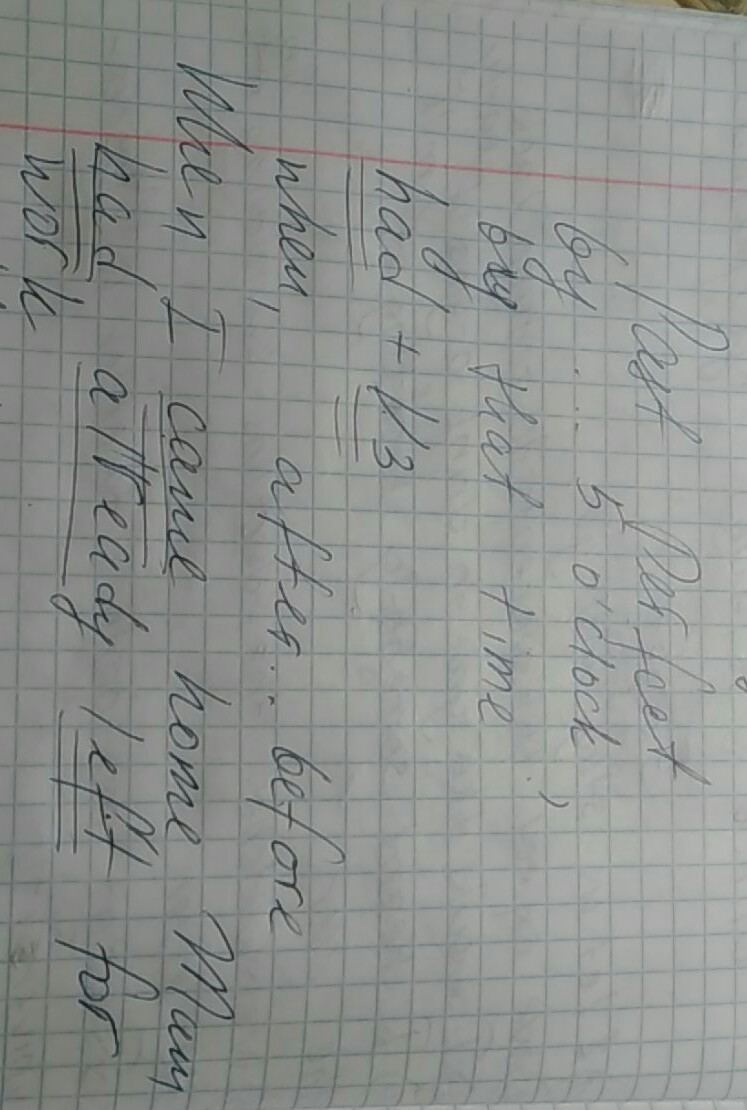 Past Perfect
by ... 5 o'clock,
by that time
had + V3
when, after.. before
When I came home Mum
had already left for
work